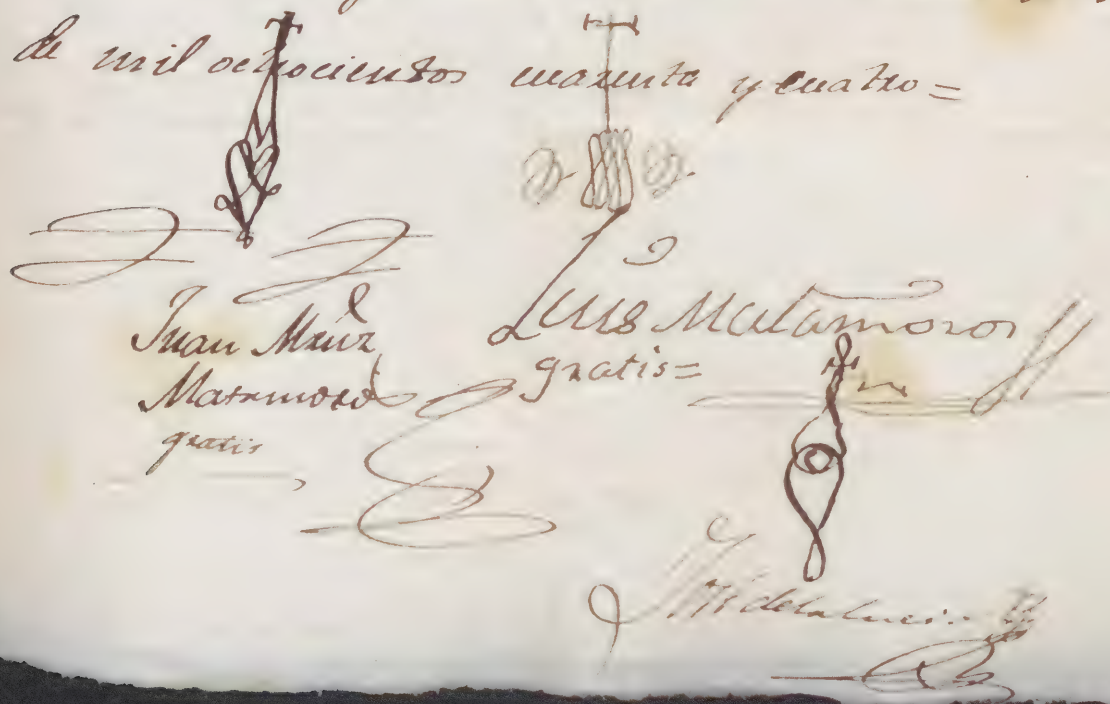 de mil ochocientos cuarenta y cuatro =
Luis Matamoros
gratis =
Juan
Matamoros
gratis